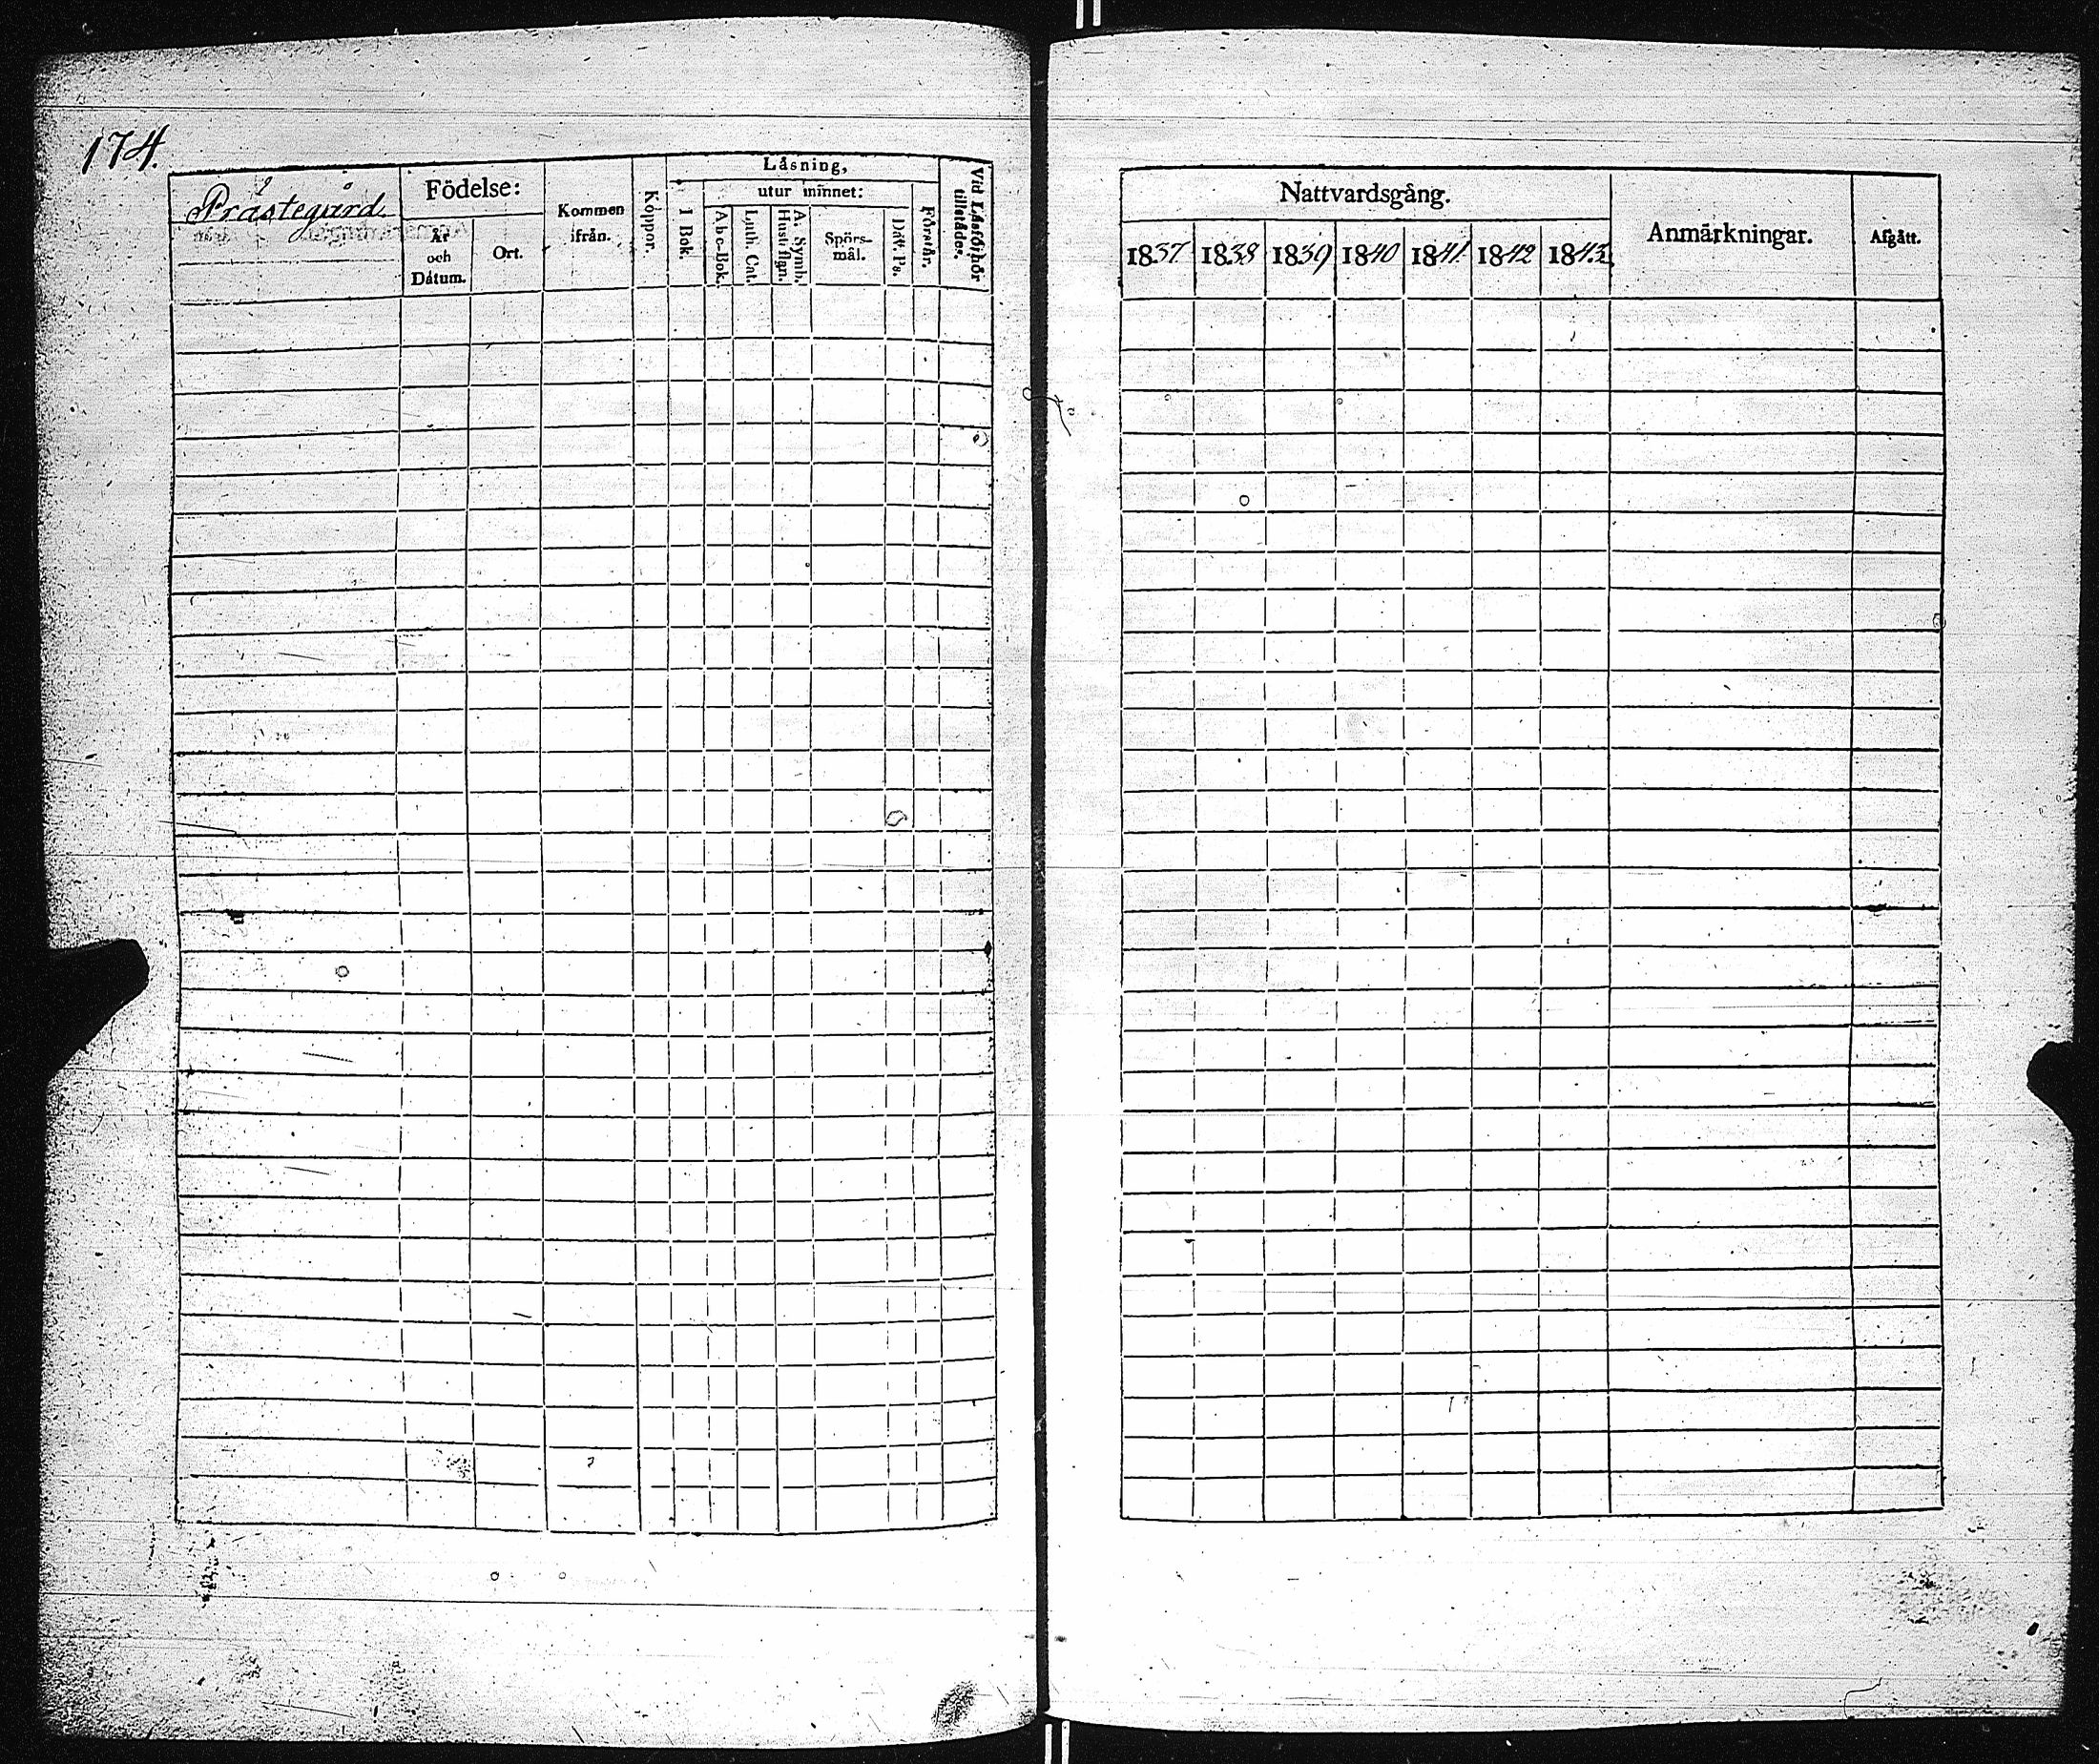 174.
Pråstegård.
Födelse:
År
och
Dåtum.
Ort.
Kommen
ifrån.
Koppor.
Låsning,
1 Bok.
utur minnet:
A b c-Bok.
Luth. Cat.
A. Symb.
Hustaflan.
Spörs-
mål.
Dav. Ps.
Förstår.
Vid Låsförhör
tillstådes.
Nattvardsgång.
1837 1838 1839 1840 1841 1842 1843.
Anmärkningar.
Afgått.